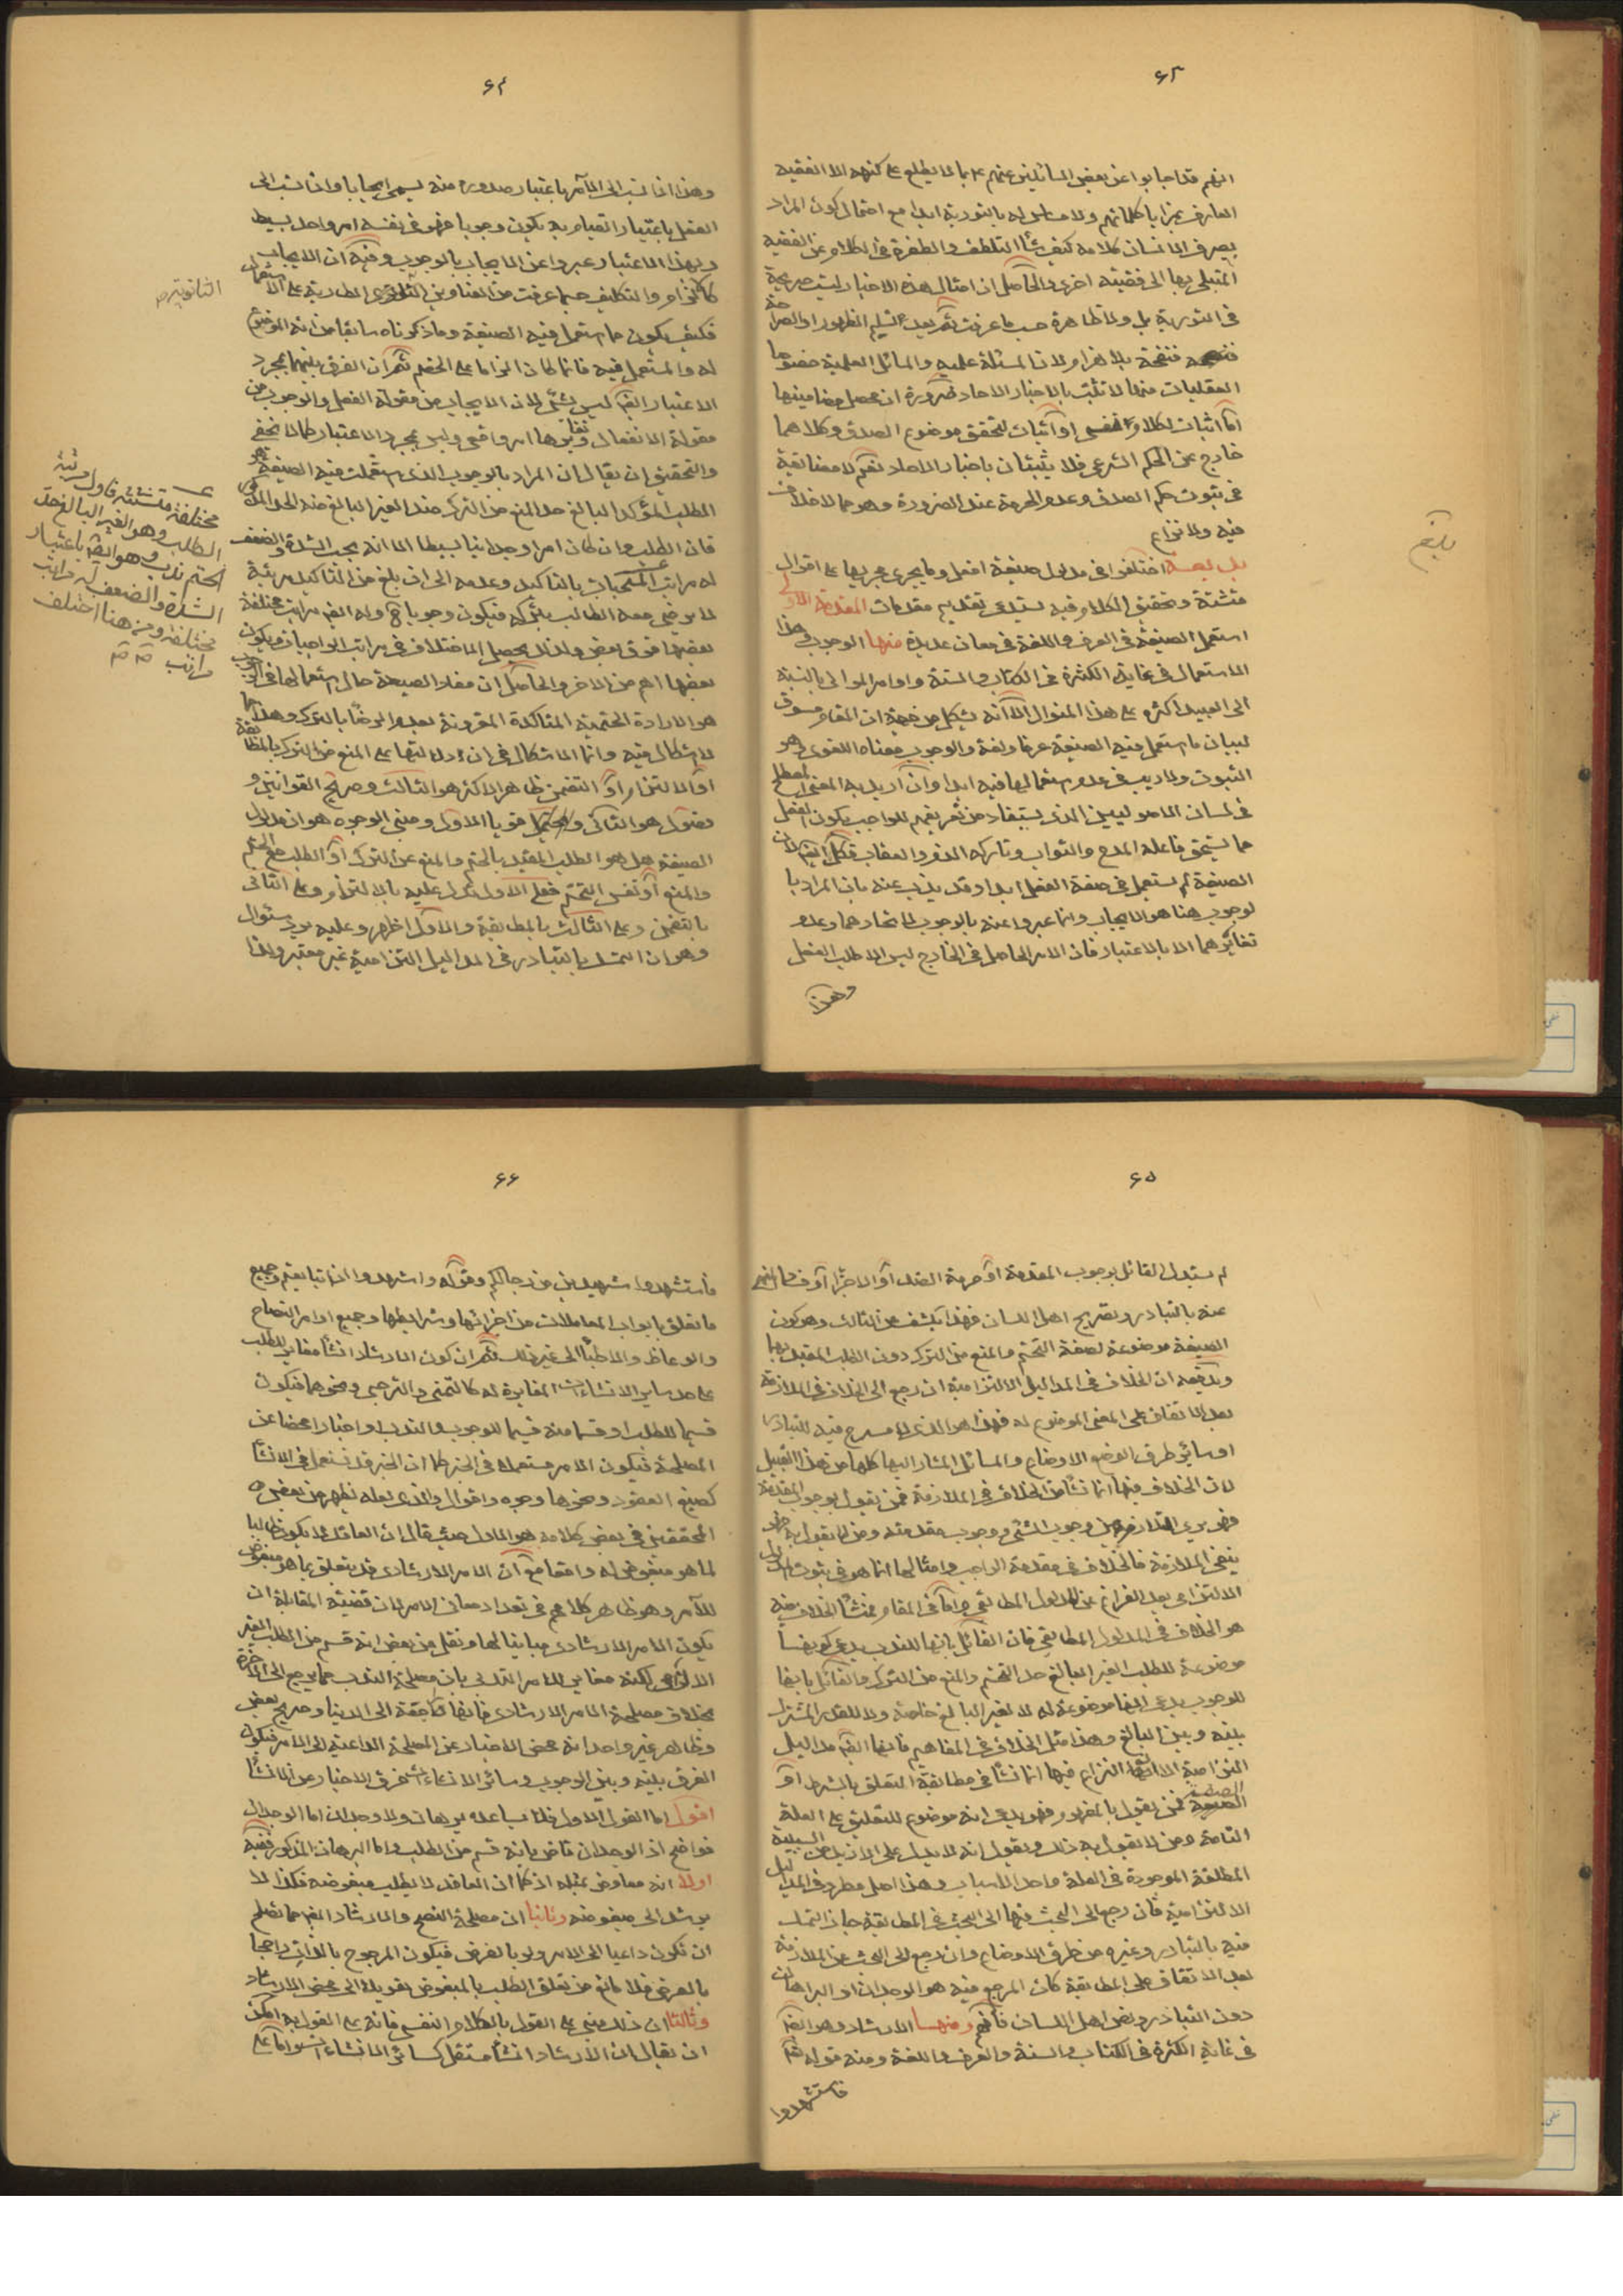 ٦٣
انهم قد اجابوا عن بعض السائلين عنهم ع بما لا يطلع على كنهه الا الفقيه
العارف بمزايا كلماتهم ولا مساس له بالتورية ابدا مع احتمال كون المراد
بصرف الانسان كلامه كيف شاء التلطف والطفرة في الكلام عن القضية
المبتلى بها الى قضية اخرى والحاصل ان امثال هذه الاخبار ليست صريحة
في التورية بل ولا ظاهرة حسب ما عرفت ثم بعد تسليم الظهور او الصراحة
ولان المسئلة علمية والمسائل العلمية خصوصا
العقليات منها لا تثبت بالاخبار الاحاد ضرورة ان محصل مضامينها
اما اثبات الكلام النفسي او اثبات لتحقق موضوع الصدق وكلاهما
خارج عن الحكم الشرعي فلا يثبتان باخبار الاحاد نعم لا مضايقة
في ثبوت حكم الصدق وعدم الحرمة عند الضرورة وهو مما لا خلاف
فيه ولا نزاع
اختلفوا في مدلول صيغة افعل وما يجري مجريها على اقوال
متشتتة وتحقيق الكلام فيه يستدعي تقديم مقدمات المقدمة الاولى
استعمل الصيغة في العرف واللغة في معان عديدة منها الوجوب وهذا
الاستعمال في غاية الكثرة في الكتاب والسنة واوامر الموالى بالنسبة
الى العبيد اكثره على هذا المنوال الا انه يشكل من جهة ان المقام مسوق
لبيان ما استعمل فيه الصيغة عرفا ولغة والوجوب معناه اللغوي هو
الثبوت ولا ريب في عدم استعمالها فيه ابدا وان اريد به المعنى المصطلح
في لسان الاصوليين الذي يستفاد من تعريفهم للواجب بكون الفعل
مما يستحق فاعله المدح والثواب وتاركه الذم والعقاب فكل ايضا لان
الصيغة لم يستعمل في صفة الفعل ابدا وقد يذب عنه بان المراد با
لوجوب هنا هو الايجاب وانما عبروا عنه بالوجوب لاتحادهما وعدم
تغايرهما الا بالاعتبار فان الامر الحاصل في الخارج ليس الا طلب الفعل
وهذا
٦٤
وهذا اذا نسب الى الآمر باعتبار صدوره منه يسمى ايجابا واذا نسب الى
الفعل باعتبار القيام به يكون وجوبا فهو في نفسه امر واحد بسيط
وبهذا الاعتبار عبروا عن الايجاب بالوجوب وفيه ان الايجاب
كالالزام والتكليف حسبما عرفت من العناوين الثانوية الطارية على الاستعمال
فكيف يكون مما استعمل فيه الصيغة وما ذكرناه سابقا من انه الموضوع
له والمستعمل فيه فانما كان الزاما على الخصم ثم ان الفرق بينهما بمجرد
الاعتبار ايضا ليس بشئ لان الايجاب من مقولة الفعل والوجوب من
مقولة الانفعال وتغايرهما امر واقعي وليس بمجرد الاعتبار كما لا يخفى
والتحقيق ان يقال ان المراد بالوجوب الذي استعملت فيه الصيغة هو
الطلب المؤكد البالغ حد المنع من الترك ضد الغير البالغ منه الى الحد المذكور
فان الطلب وان كان امرا وجدانيا بسيطا الا انه بحسب الشدة والضعف
له مراتب بالتاكيد وعدمه الى ان بلغ من التاكيد مرتبة
لا يرضى معه الطالب بتركه فيكون وجوبا ح وله ايضا مراتب مختلفة
بعضها فوق بعض ولذلك يحصل الاختلاف في مراتب الواجبات ويكون
بعضها اهم من الاخر والحاصل ان مفاد الصيغة حال استعمالها في الوجوب
هو الارادة الحتمية المتاكدة المقرونة بعدم الرضا بالترك وهذا مما
لا اشكال فيه وانما الاشكال في ان دلالتها على المنع من الترك بالمطابقة
او الالتزام او التضمن ظاهر الاكثر هو الثالث وصريح القوانين و
الفصول هو الثاني ويحتمل قويا الاول ومبنى الوجوه هو ان مدلول
الصيغة هل هو الطلب المقيد بالحتم والمنع عن الترك او الطلب مع الحتم
والمنع او نفس التحتم فعلى الاول تدل عليه بالالتزام وعلى الثاني
بالتضمن وعلى الثالث بالمطابقة والاول اظهر وعليه يرد سئوال
وهو ان التمسك بالتبادر في المداليل التزامية غير معتبر ولذا
الثانوية
مختلفة متشتتة فاول مرتبة
الطلب وهو الغير البالغ حد
الحتم ندب وهو ايضا باعتبار
الشدة والضعف له مراتب
مختلفة ومن هنا اختلف
مراتب
بلغ
٦٥
لم يستدل القائل بوجوب المقدمة او حرمة الضد او الاجزاء او فساد المنهي
عنه بالتبادر وتصريح اهل اللسان فهذا يكشف عن الثالث وهو كون
الصيغة موضوعة لصفة التحتم والمنع من الترك دون الطلب المقيد بها
ويدفعه ان الخلاف في المداليل الالتزامية ان رجع الى الخلاف في الملازمة
بعد الاتفاق على المعنى الموضوع له فهذا هو الذي لا مسرح فيه للتبادر
او سائر طرق الوضع الاوضاع والمسائل المشار اليها كلها من هذا القبيل
لان الخلاف فيها انما نشأ من الخلاف في الملازمة فمن يقول بوجوب المقدمة
فهو يدعي التلازم بين وجوب الشئ ووجوب مقدمته ومن لا يقول به فهو
ينفي الملازمة فالخلاف في مقدمة الواجب وامثالها انما هو في ثبوت المدلول
الالتزامي بعد الفراغ عن المدلول المطابقي واما في المقام فمنشأ الخلاف فيه
هو الخلاف في المدلول المطابقي فان القائل بانها للندب يدعي كونها
موضوعة للطلب الغير البالغ حد التحتم والمنع من الترك والقائل بانها
للوجوب يدعي انها موضوعة له لا لغير البالغ خاصة ولا للقدر المشترك
بينه وبين البالغ وهذا مثل الخلاف في المفاهيم فانها ايضا مداليل
التزامية الا ان النزاع فيها انما نشأ في مطابقة التعلق بالشرط او
الصفة فمن يقول بالمفهوم فهو يدعي انه موضوع للتعليق على العلة
التامة ومن لا يقول به ذلك ويقول انه لا يدل على الازيد من السببية
المطلقة الموجودة في العلة واحد الاسباب وهذا اصل مطرد في المداليل
الالتزامية فان رجع الى البحث فيها الى البحث في المطابقة جاز التمسك
فيه بالتبادر وغيره من طرق الاوضاع وان رجع الى البحث عن الملازمة
بعد الاتفاق على المطابقة كان المرجع فيه هو الوجدان او البراهان
دون التبادر ونص اهل اللسان فافهم ومنها الارشاد وهو ايضا
في غاية الكثرة في الكتاب والسنة والعرف واللغة ومنه قوله تعالى
فاستشهدوا
٦٦
فاستشهدوا شهيدين من رجالكم وقوله واشهدوا اذا تبايعتم وجميع
ما تعلق بابواب المعاملات من اجزائها وشرايطها وجميع اوامر النصاح
والوعاظ والاطباء الى غير ذلك ثم ان كون الارشاد انشاء مغاير للطلب
على حد ساير الانشاءات المغايرة له كالتمني والترجي ونحوهما فيكون
قسيما للطلب او قسما منه قسيما للوجوب والندب او اخبارا محضا عن
المصلحة فيكون الامر مستعملا في الخبر كما ان الخبر قد يستعمل في الانشاء
كصيغ العقود ونحوها وجوه واقوال والذي لعله يظهر من بعض
المحققين في بعض كلامه هو الاول حيث قال ان العاقل لا يكون طالبا
لما هو مبغوض له واقعا مع ان الامر الارشادي قد يتعلق بما هو مبغوض
للآمر وهو ظاهر كلامهم في تعداد معاني الامر لان قضية المقابلة ان
يكون الامر الارشادي مباينا لها ونقل من بعض انه قسم من الطلب الغير
الالزامي لكنه مغاير للامر الندبي بان مصلحة الندب مما يرجع الى الاخرة
بخلاف مصلحة الامر الارشادي فانها راجعة الى الدنيا وصريح بعض
وظاهر غير واحد انه محض الاخبار عن المصلحة الداعية الى الامر فيكون
الفرق بينه وبين الوجوب وسائر الانشاءات فرق الاخبار من الانشاء
اقول اما القول الاول فلا يساعده برهان ولا وجدان اما الوجدان
فواضح اذ الوجدان قاض بانه قسم من الطلب واما البرهان المذكور ففيه
اولا انه معارض بمثله اذ كما ان العاقل لا يطلب مبغوضه فكذا لا
يرشد الى مبغوضه وثانيا ان مصلحة النصح والارشاد ايضا مما تصلح
ان تكون داعيا الى الامر ولو بالعرض فيكون المرجوح بالذات راجحا
بالعرض فلا مانع من تعلق الطلب بالمبغوض لغويله الى محض الارشاد
وثالثا ان ذلك مبني على القول بالكلام النفسي فانه على القول به امكن
ان يقال ان الارشاد انشاء مستقل كسائر الانشاءات واما على